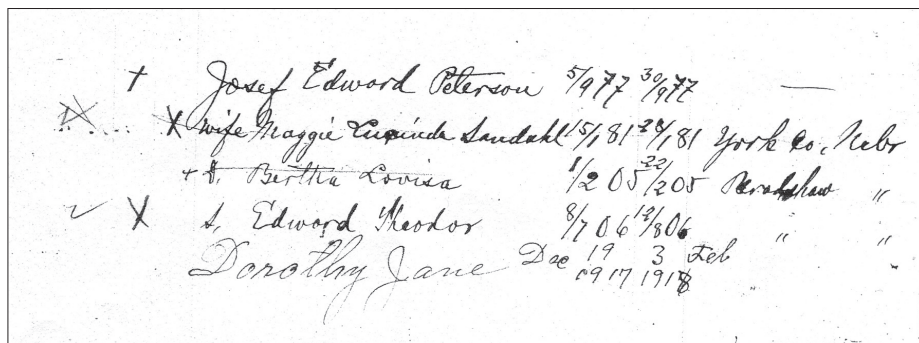 Josef Edward Peterson 5/9 77 30/9 77 —
X wife Maggie Lucinda Sandahl 15/1 81 28/1 81 York Co, Nebr
+ D. Bertha Lovisa 1/2 05 22/2 05 Bradshaw "
X S. Edward Theodor 8/7 06 12/8 06 " "
Dorothy Jane Dec 19 3 Feb
1917 1918 " "